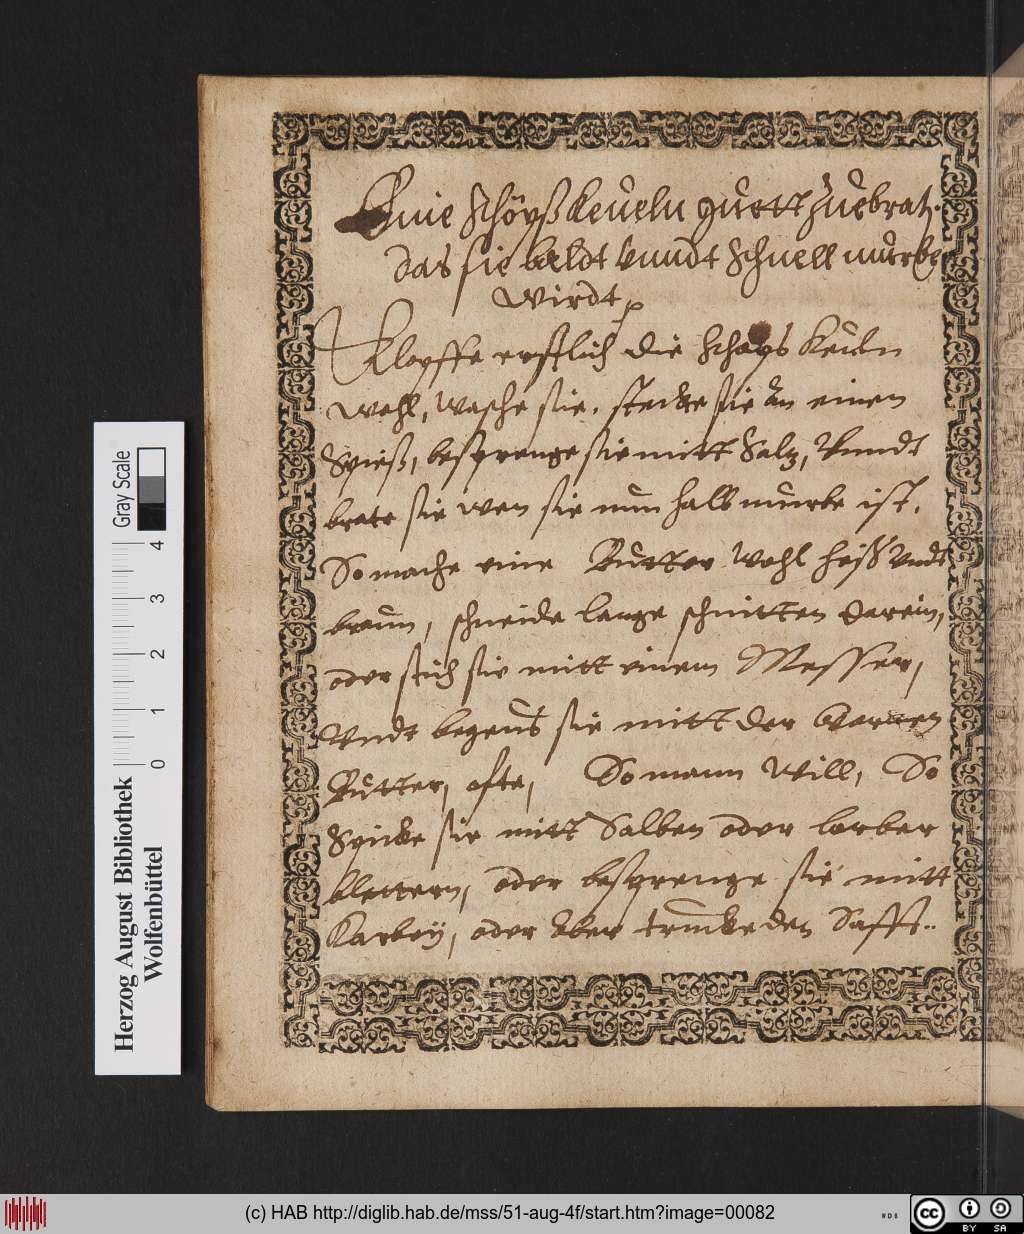 Eine schöpß keueln guett zue brat.
das sie baldt vnndt schnell mürbe
wirdt,
Klopffe erstlich die schops Keuln
wohl, wasche sie, stecke sie an einen
Spieß, besprenge sie mitt Saltz, Vnndt
brate sie wen sie nun halb murbe ist.
So mache eine Butter wohl heiß Vndt
braun, schneide lange schnitten darein,
oder stich sie mitt einem Messer,
Vndt begeus sie mitt der
Butter, offte, So mann will, So
Spicke sie mitt Salben oder lorber
blettern, oder besprenge sie mitt
oder Aber trucke den Safft..
Gray Scale
0 1 2 3 4
Herzog August Bibliothek
Wolfenbüttel
(c) HAB http://diglib.hab.de/mss/51-aug-4f/start.htm?image=00082
WDB
cc BY SA